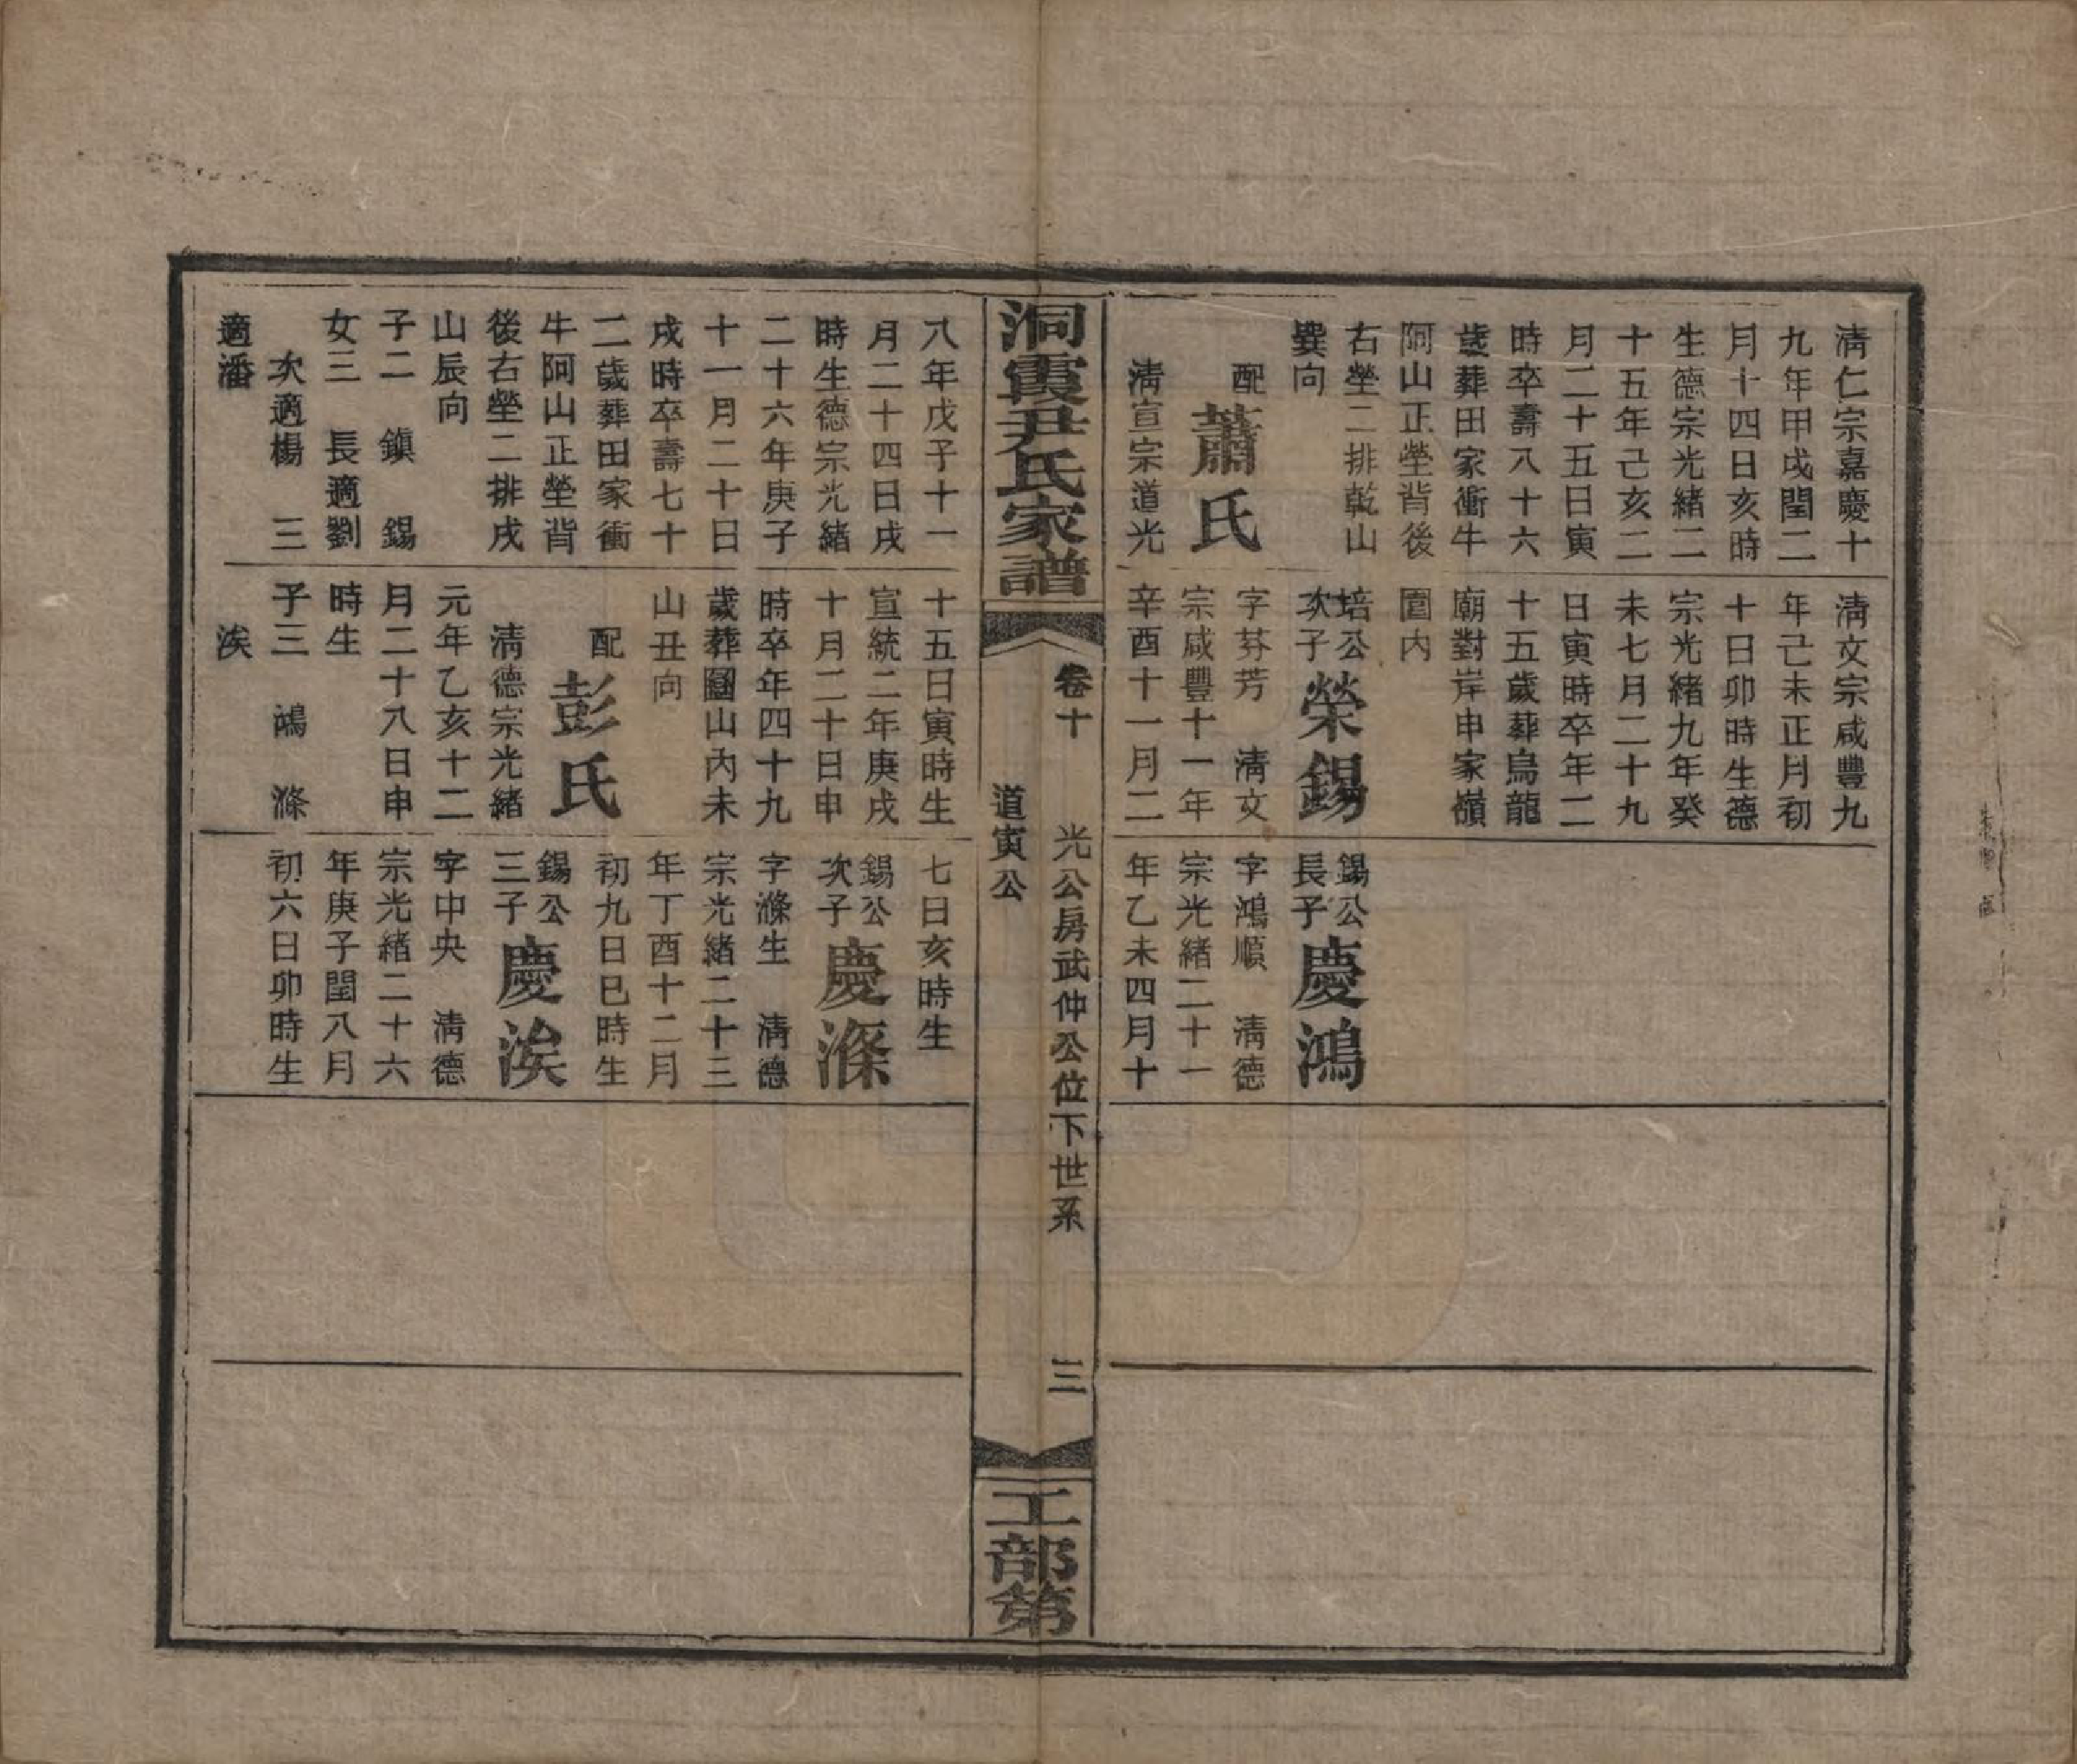 清仁宗嘉慶十
九年甲戌閏二
月十四日亥時
生德宗光緒二
十五年己亥二
月二十五日寅
時卒壽八十六
歲葬田家衝牛
阿山正塋背後
右塋二排乾山
巽向
配蕭氏
清宣宗道光
清文宗咸豐九
年己未正月初
十日卯時生德
宗光緒九年癸
未七月二十九
日寅時卒年二
十五歲葬烏龍
廟對岸申家嶺
圍内
培公次子榮錫
字芬芳 清文
宗咸豐十一年
辛酉十一月二
錫公長子慶鴻
字鴻順 清德
宗光緒二十一
年乙未四月十
洞霞尹氏家譜
卷十 光公房武仲公位下世系 三
道寅公
工部第
八年戊子十一
月二十四日戌
時生德宗光緒
二十六年庚子
十一月二十日
戌時卒壽七十
二歲葬田家衝
牛阿山正塋背
後右塋二排戌
山辰向
子二 鎭 錫
女三 長適劉
次適楊 三
適潘
十五日寅時生
宣統二年庚戌
十月二十日申
時卒年四十九
歲葬圝山内未
山丑向
配彭氏
清德宗光緒
元年乙亥十二
月二十八日申
時生
子三 鴻 滌
涘
七日亥時生
錫公次子慶滌
字滌生 清德
宗光緒二十三
年丁酉十二月
初九日巳時生
錫公三子慶涘
字中央 清德
宗光緒二十六
年庚子閏八月
初六日卯時生